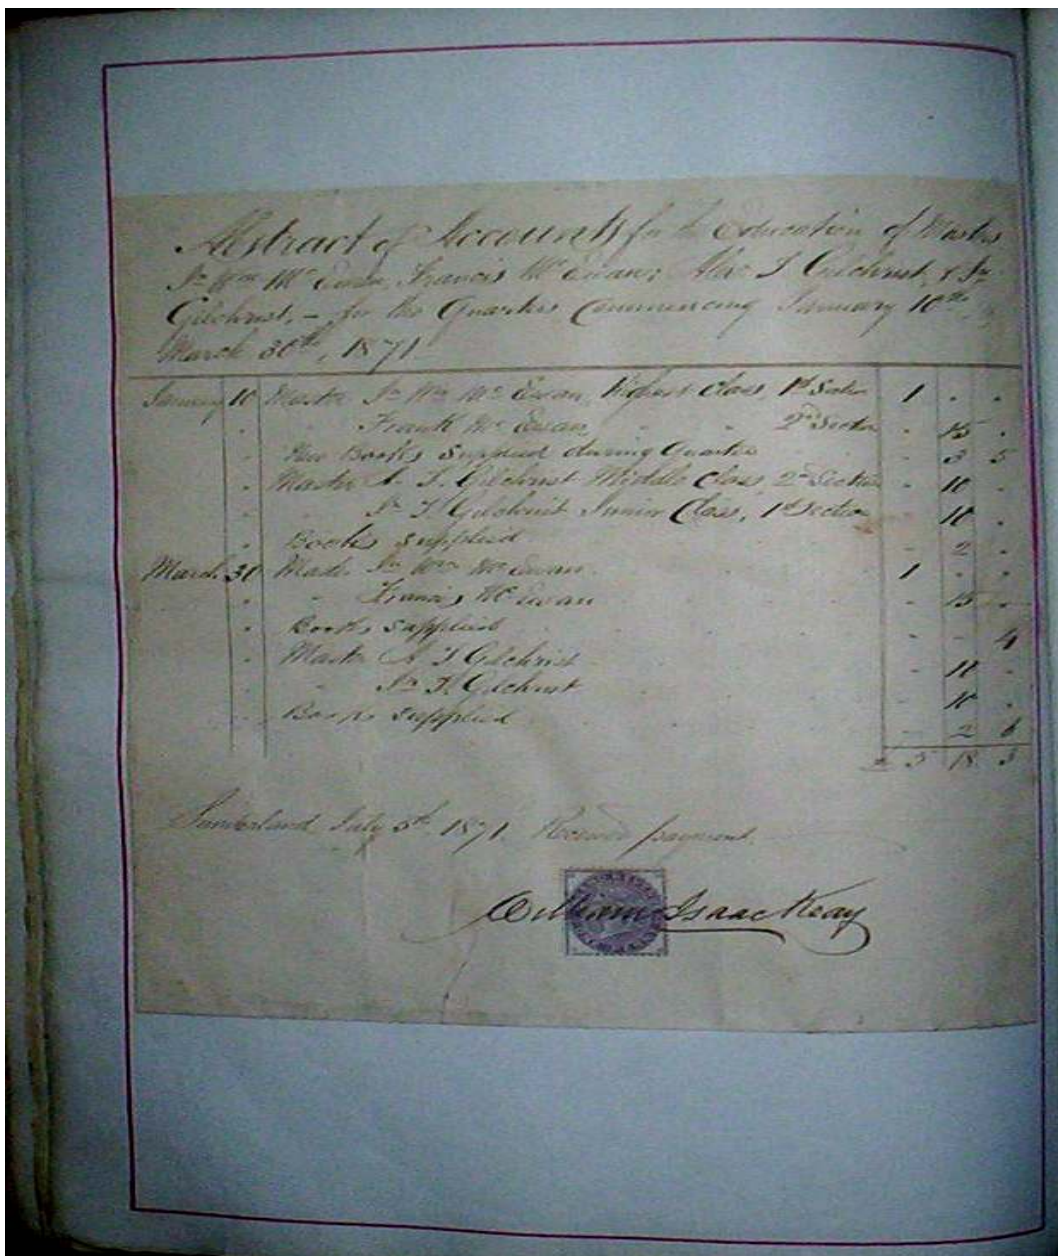 Abstract of Accounts for the Education of Masters
Jn Wm Mc Ewan, Francis Mc Ewan; Alex T Gilchrist, & Jn
Gilchrist, – for the Quarters Commencing January 10th,
March 30th, 1871
January 10 Master Jn Wm Mc Ewan, highest Class, 1st Section 1 . .
. Frank Mc Ewan, 2nd Section . 15 .
. Books Supplied during Quarter . 3 5
. Master A. T. Gilchrist Middle Class, 2nd Section . 10 .
. Jn T. Gilchrist Junior Class, 1st Section . 10 .
. Books supplied - 2 .
March 31 Jn Wm Mc Ewan. 1 . .
. Francis Mc Ewan - 15 .
. Books supplied - - 4
. Master A T Gilchrist - 10 .
. Jn T. Gilchrist - 10 .
. Books supplied - 2 6
£ 5 18 3
Sunderland July 5th 1871. Received payment.
William Isaac Keay